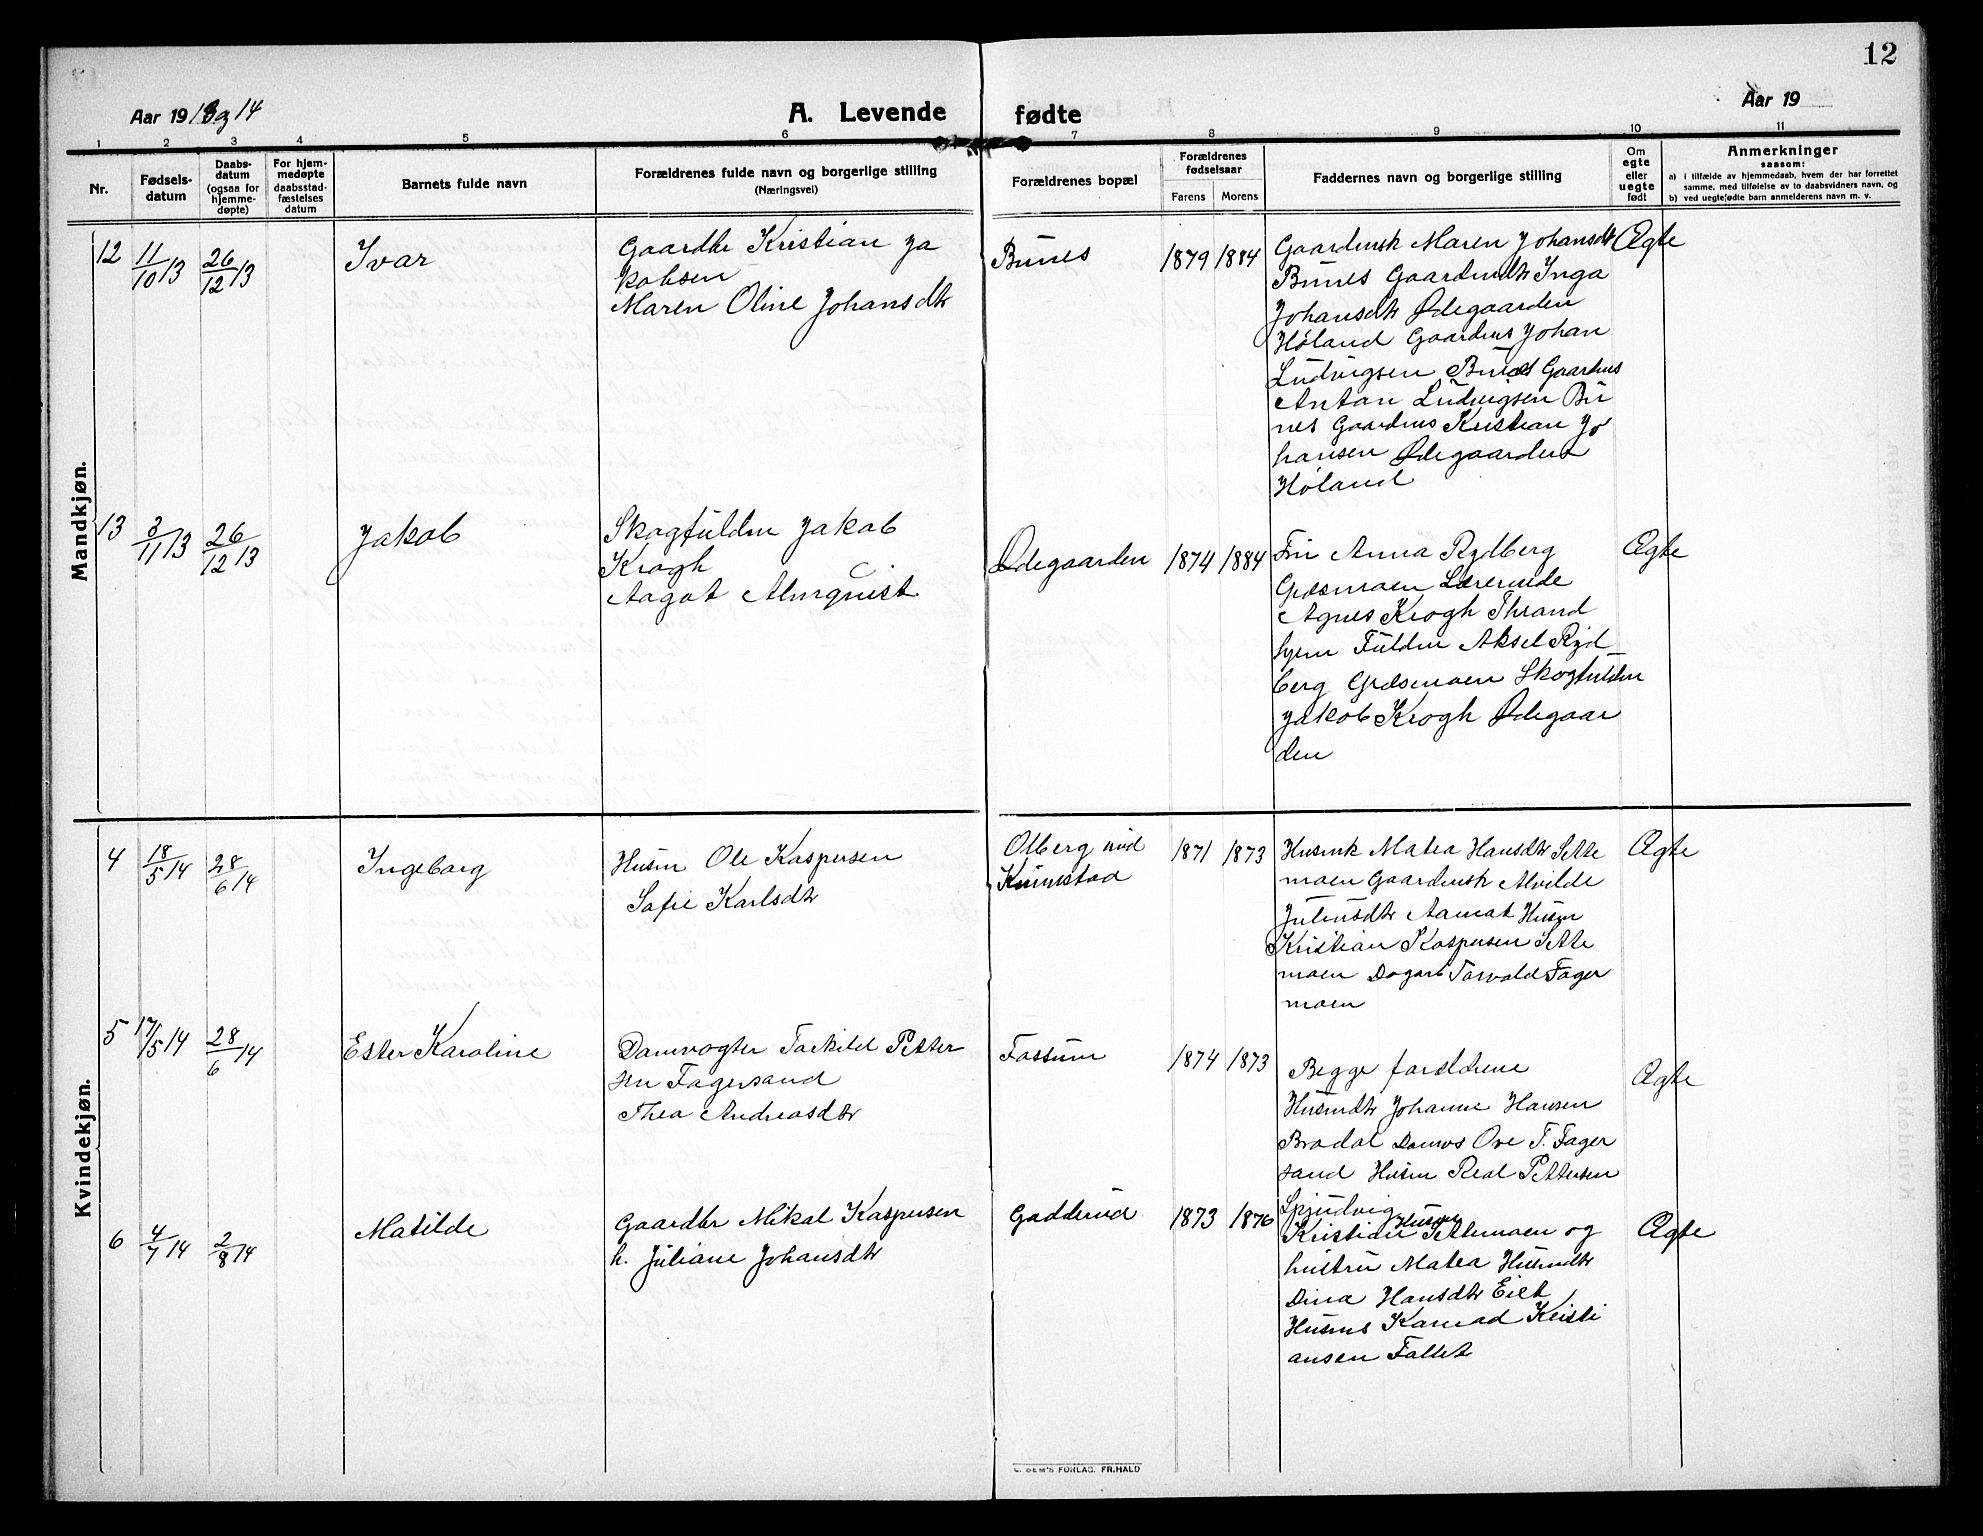 12
Aar 1913 og 14
A. Levende fødte
Aar 19
1 2 3 4 5 6 7 8 9 10 11
Nr.
Fødsels-
datum
Daabs-
datum
(ogsaa for
hjemme-
døpte)
For hjem-
medøpte
daabsstad-
fæstelses
datum
Barnets fulde navn
Forældrenes fulde navn og borgerlige stilling
(Næringsvei)
Forældrenes bopæl
Forældrenes
fødselsaar
Farens Morens
Faddernes navn og borgerlige stilling
Om
egte
eller
uegte
født
Anmerkninger
saasom:
a) i tilfælde av hjemmedaab, hvem der har forrettet
samme, med tilføielse av to daabsvidners navn, og
b) ved uegtefødte barn anmelderens navn m. v.
Mandkjøn.
12 11/10 13 26/12 13
Ivar
Gaardbr Kristian Ja
kobsen
Maren Oline Johansdtr
Bunes
1879 1884
Gaardmsk Maren Johansdtr
Bunes Gaardmdtr Inga
Johansdtr Ødegaarden
Høland Gaardms Johan
Ludvigsen Bunes Gaardms
Anton Ludvigsen Bu
nes Gaardms Kristian Jo
hansen Ødegaarden
Høland
Ægte
13 3/11 13 26/12 13
Jakob
Skogfuldm Jakob
Krogh
Aagot Almquist
Ødegaarden
1874 1884
Fru Anna Rydberg
Græsmoen Lærerinde
Agnes Krogh Thrond
hjem Fuldm Aksel Ryd
berg Græsmoen Skogfuldm
Jakob Krogh Ødegaar
den
Ægte
Kvindekjøn.
4 18/5 14 28/6 14
Ingeborg
Husm Ole Kaspersen
Sofie Karlsdtr
Olberg und
Kunnestad
1871 1873
Husmk Matea Hansdtr Sætte
moen Gaardmsk Alvilde
Juliusdtr Aamot Husm
Kristian Kaspersen Sætte
moen Dagarb Torvald Fager
moen
Ægte
5 17/5 14 28/6 14
Ester Karoline
Damvogter Torkild Petter
sen Fagersand
Thea Andreasdtr
Fossum
1874 1873
Begge forældrene
Husmdtr Johanne Hansen
Bradal Damvs Ove T. Fager
sand Husm Real Pettersen
Spjudvig
Ægte
6 4/7 14 2/8 14
Matilde
Gaardbr Mikal Kaspersen
h. Juliane Johansdtr
Gadderud
1873 1876
Husm
Kristian Sætemoen og
hustru Matea Husmdtr
Dina Hansdtr Eiet
Husms Konrad Kristi
ansen Fallet
Ægte
FORLAG. FR.HALD